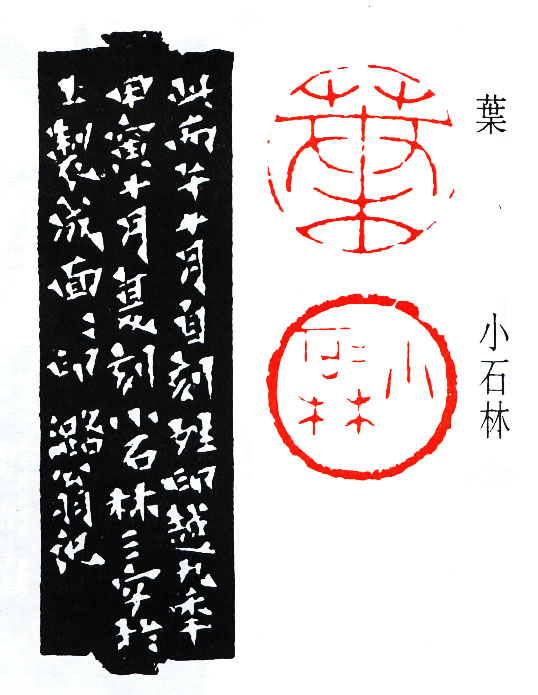 葉
葉
小石林
小石林
此丙午十月自刻姓印越九年
甲寅十月复刻小石林三字於
上製成面〻印 潞翁記